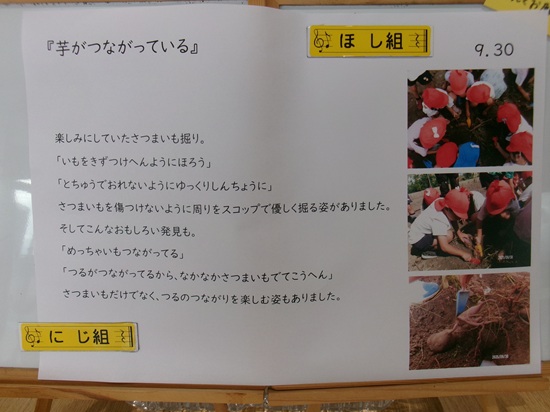 『芋がつながっている』
ほし組
9.30
楽しみにしていたさつまいも掘り。
「いもをきずつけへんようにほろう」
「とちゅうでおれないようにゆっくりしんちょうに」
さつまいもを傷つけないように周りをスコップで優しく掘る姿がありました。
そしてこんなおもしろい発見も。
「めっちゃいもつながってる」
「つるがつながってるから、なかなかさつまいもでてこうへん」
さつまいもだけでなく、つるのつながりを楽しむ姿もありました。
にじ組